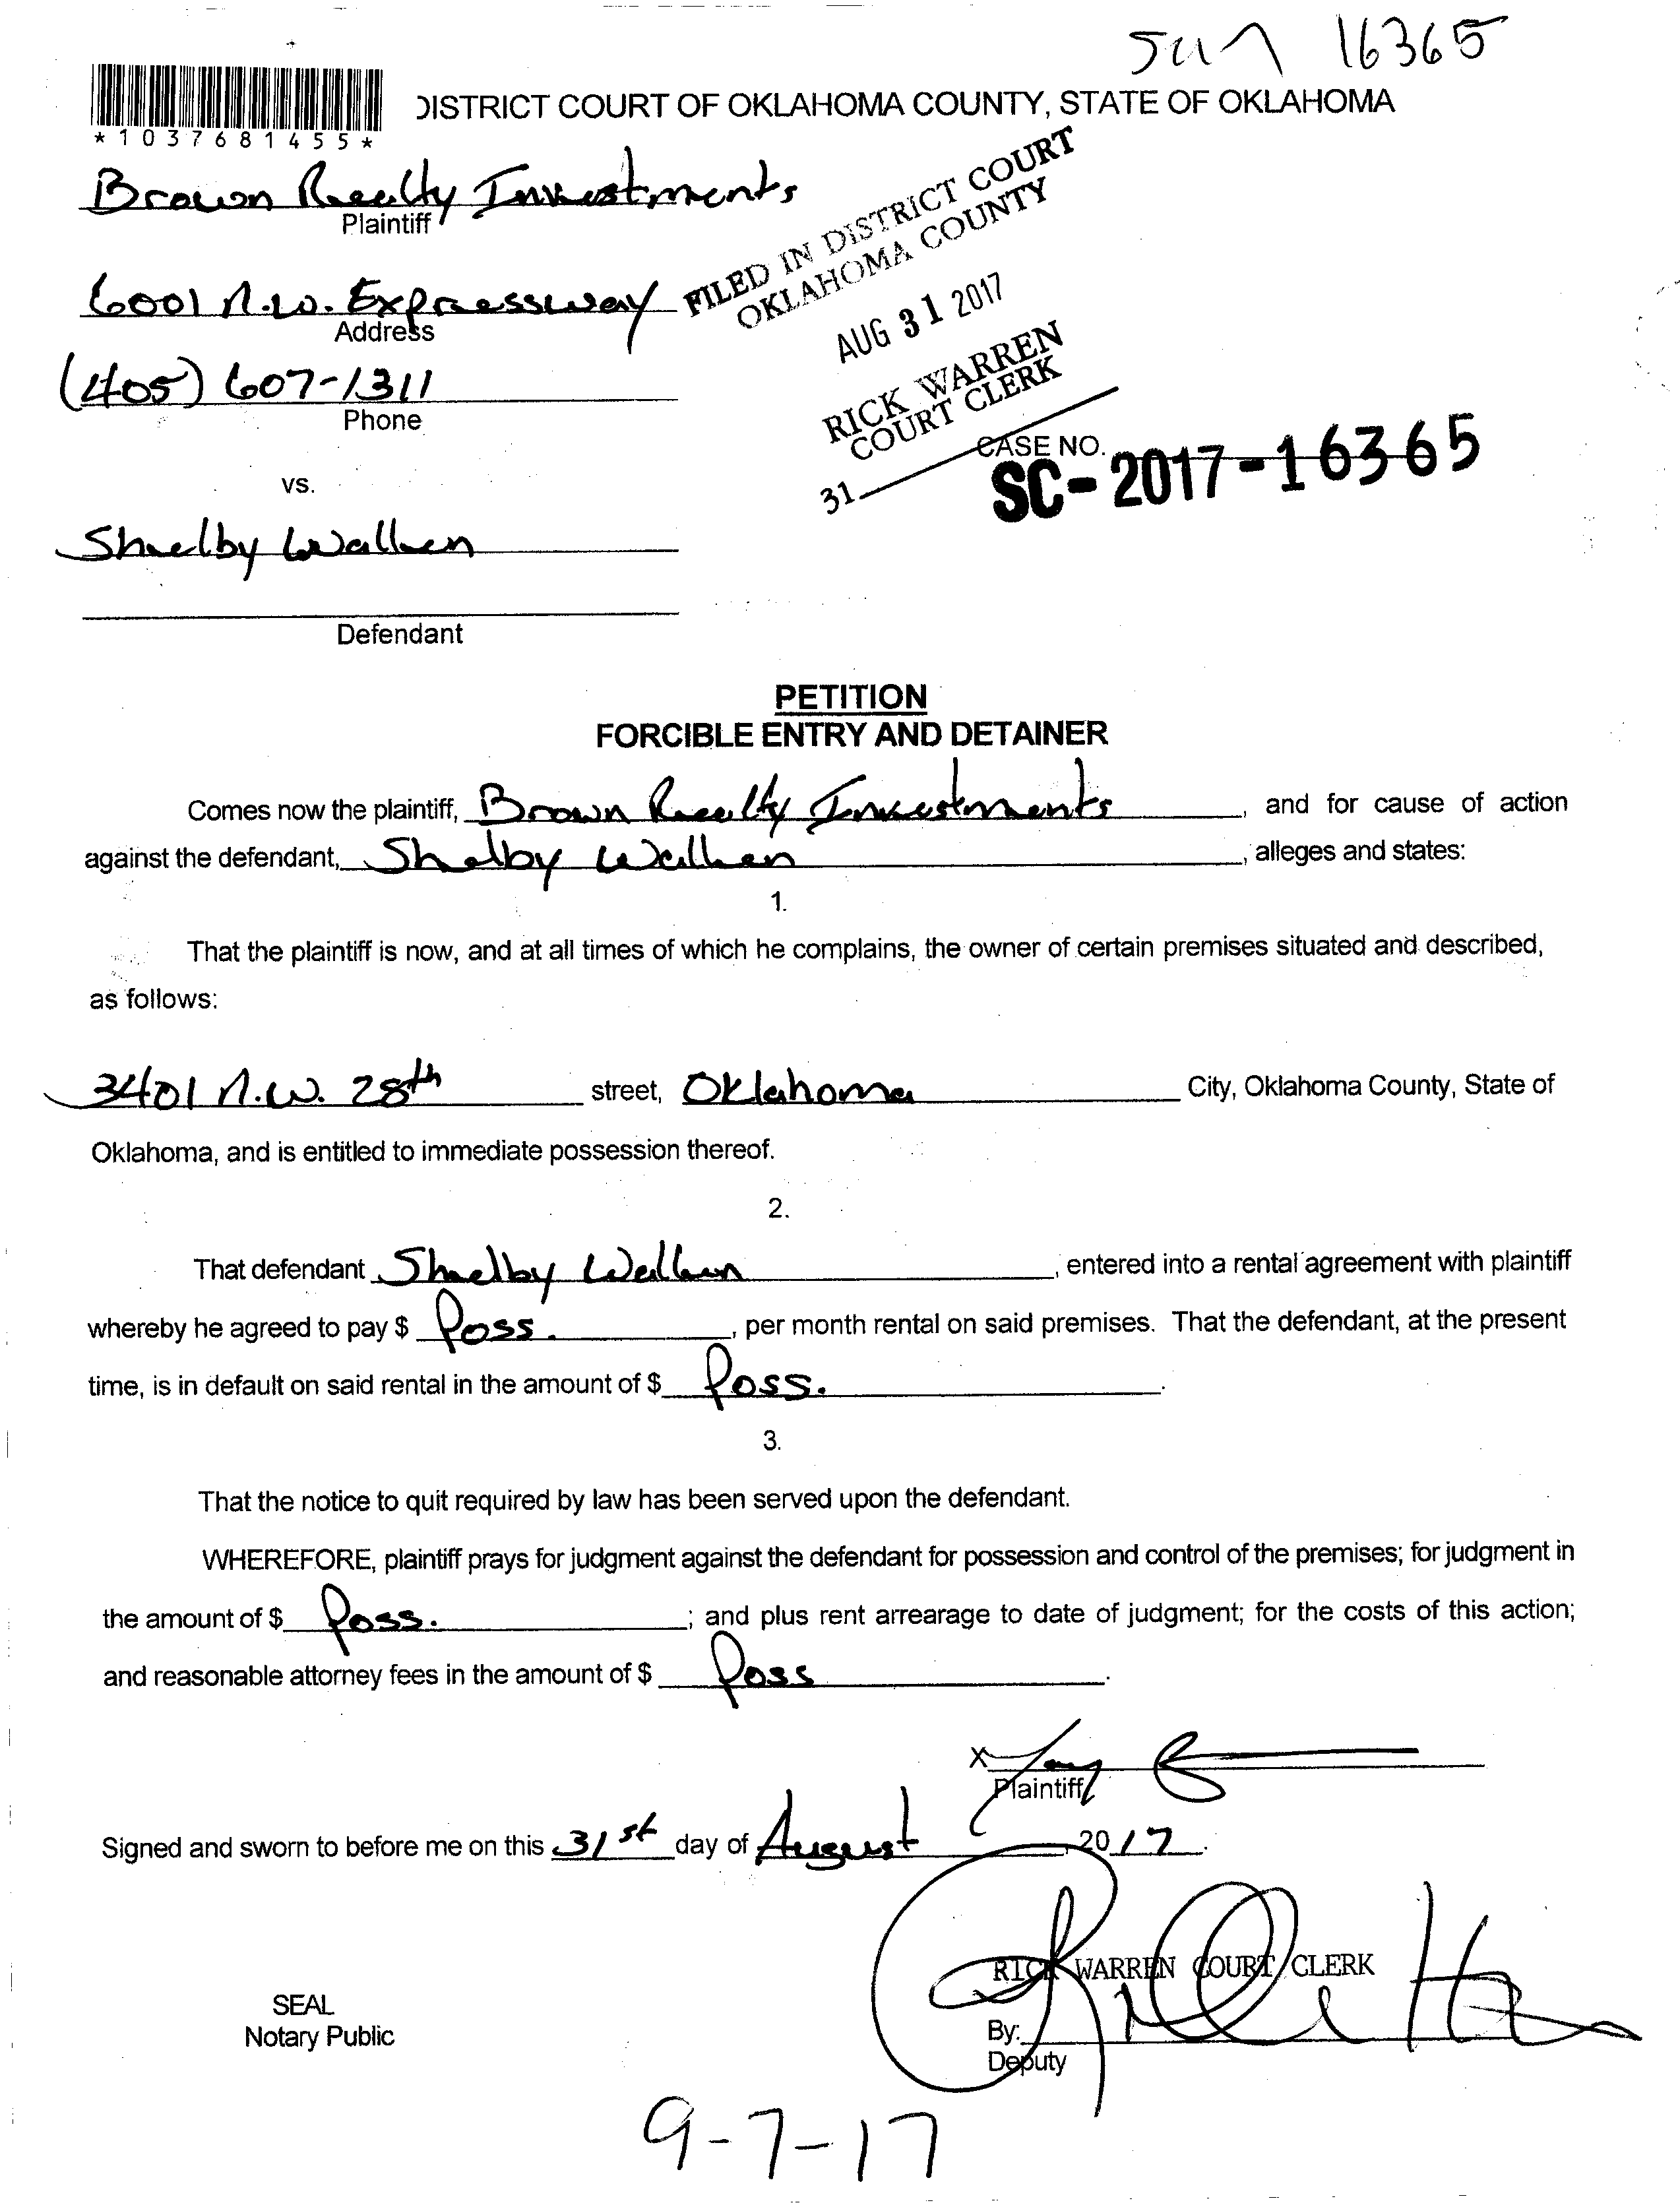 16365
*1037681455*
DISTRICT COURT OF OKLAHOMA COUNTY, STATE OF OKLAHOMA
Brown Realty Investments
Plaintiff
6001 N.W. Expressway
Address
(405) 607-1311
Phone
FILED IN DISTRICT COURT
OKLAHOMA COUNTY
AUG 31 2017
RICK WARREN
COURT CLERK
31
CASE NO.
SC-2017-16365
vs.
Shelby Wallen
Defendant
PETITION
FORCIBLE ENTRY AND DETAINER
Comes now the plaintiff, Brown Realty Investments, and for cause of action
against the defendant, Shelby Wallen, alleges and states:
1.
That the plaintiff is now, and at all times of which he complains, the owner of certain premises situated and described,
as follows:
3401 N.W. 28th street, Oklahoma City, Oklahoma County, State of
Oklahoma, and is entitled to immediate possession thereof.
2.
That defendant Shelby Wallen, entered into a rental agreement with plaintiff
whereby he agreed to pay $ Poss., per month rental on said premises. That the defendant, at the present
time, is in default on said rental in the amount of $ Poss.
3.
That the notice to quit required by law has been served upon the defendant.
WHEREFORE, plaintiff prays for judgment against the defendant for possession and control of the premises; for judgment in
the amount of $ Poss.; and plus rent arrearage to date of judgment; for the costs of this action;
and reasonable attorney fees in the amount of $ Poss.
X
Plaintiff
Signed and sworn to before me on this 31st day of August, 2017.
RICK WARREN COURT CLERK
SEAL
Notary Public
By:
Deputy
9-7-17